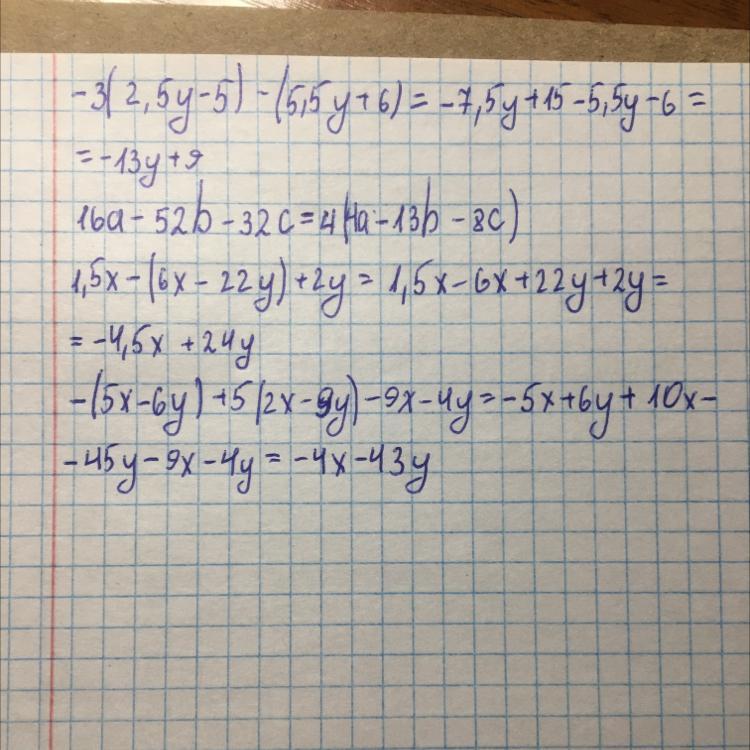 -3(2,5y-5)-(5,5y+6)=-7,5y+15-5,5y-6=
=-13y+9
16a-52b-32c=4(4a-13b-8c)
1,5x-(6x-22y)+2y=1,5x-6x+22y+2y=
=-4,5x+24y
-(5x-6y)+5(2x-9y)-9x-4y=-5x+6y+10x-
-45y-9x-4y=-4x-43y